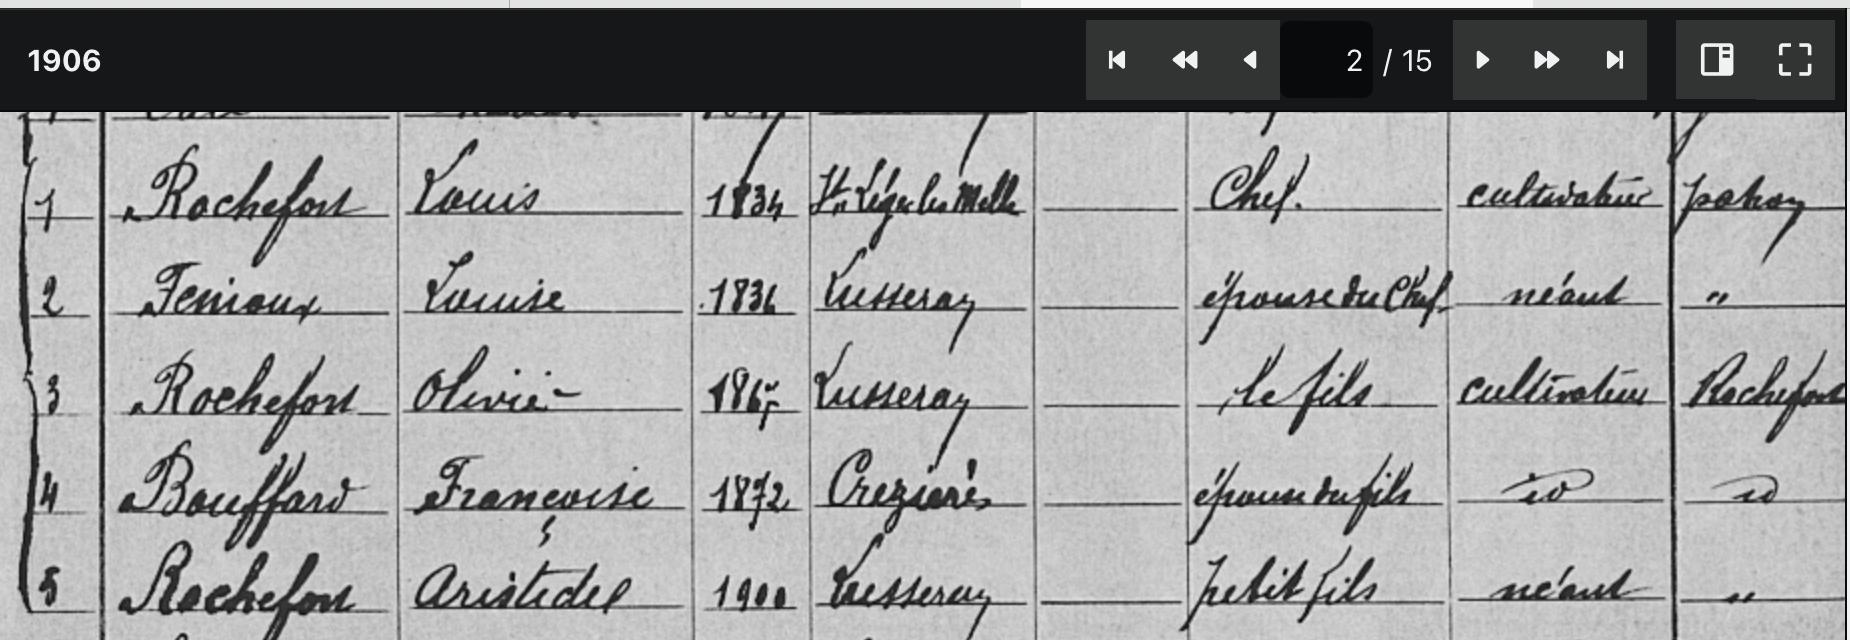 1906 2 / 15
1 Rochefort Louis 1834 St Léger les Melle Chef. cultivateur patron
2 Fenioux Louise 1836 Lusseray épouse du Chef. néant "
3 Rochefort Olivier 1865 Lusseray le fils cultivateur Rochefort
4 Bouffard Françoise 1872 Crezières épouse du fils id id
5 Rochefort Aristide 1900 Lusseray petit fils néant "